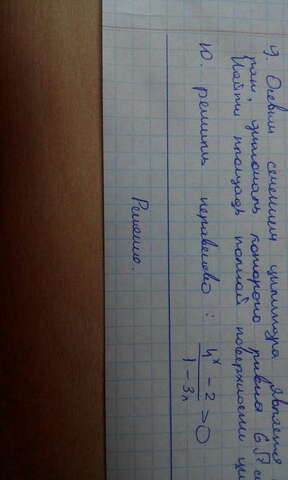 9. Осевым сечением цилиндра является
диагональ которого равна 6√
Найти площадь полной поверхности ци
10. решить неравенство: (4ˣ - 2)/(1 - 3x) > 0
Решение.